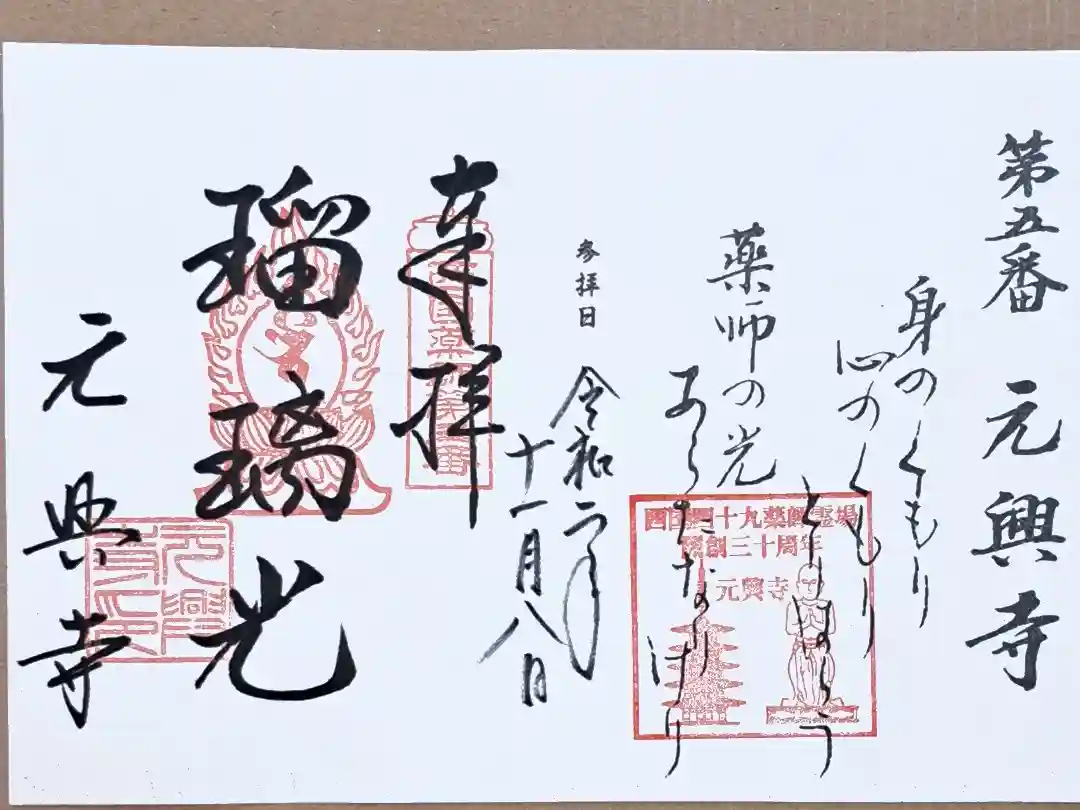 第五番 元興寺
身のくもり
心のくもり
とりはらう
薬師の光
あらたなりけり
西国四十九薬師霊場
開創三十周年
元興寺
参拝日 令和二年
十一月八日
奉拝
瑠璃光
元興寺